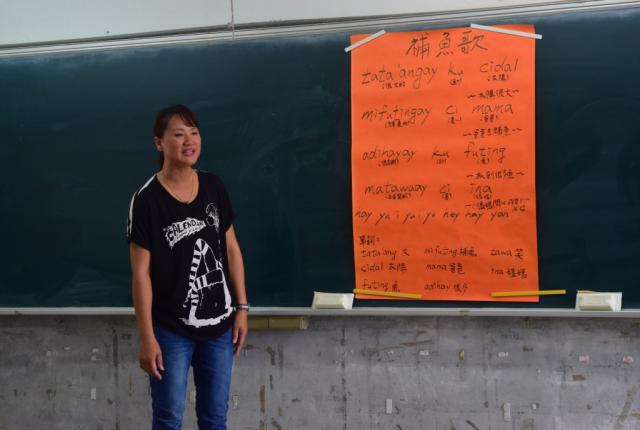 捕魚歌
tata'angay ku cidal
(很大的) (太陽)
~太陽很大~
mifutingay ci mama
(捕魚的) (爸爸)
~爸爸去捕魚~
adihayay ku futing
(魚)
matawaay ci ina
hay yu i yu i ye hey hay yan
單詞:
tata'ang 大 mifuting 捕魚 tawa 笑
cidal 太陽 mama 爸爸 ina 媽媽
futing 魚 adihay 很多
CALENDAR